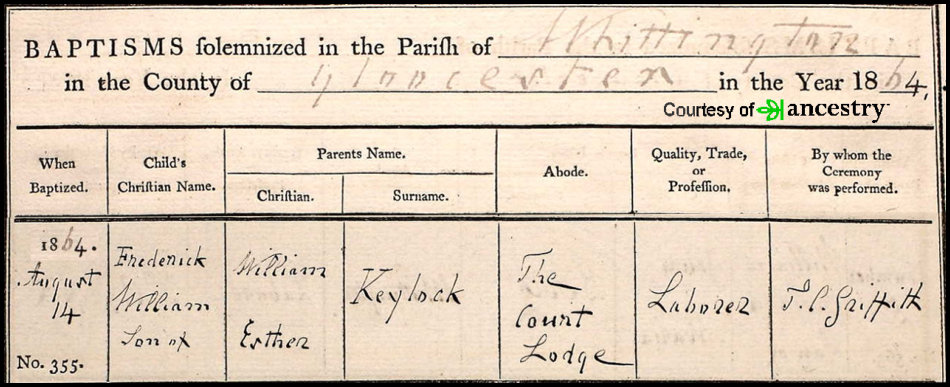 BAPTISMS solemnized in the Pariſh of Whittington
in the County of Gloucester in the Year 1864.
Courtesy of ancestry
When
Baptized.
Child's
Chriſtian Name.
Parents Name.
Chriſtian.
Surname.
Abode.
Quality, Trade,
or
Profeſſion.
By whom the
Ceremony
was performed.
1864.
August
14
No. 355.
Frederick
William
Son of
William
Esther
Keylock
The
Court
Lodge
Laborer
T. C. Griffith